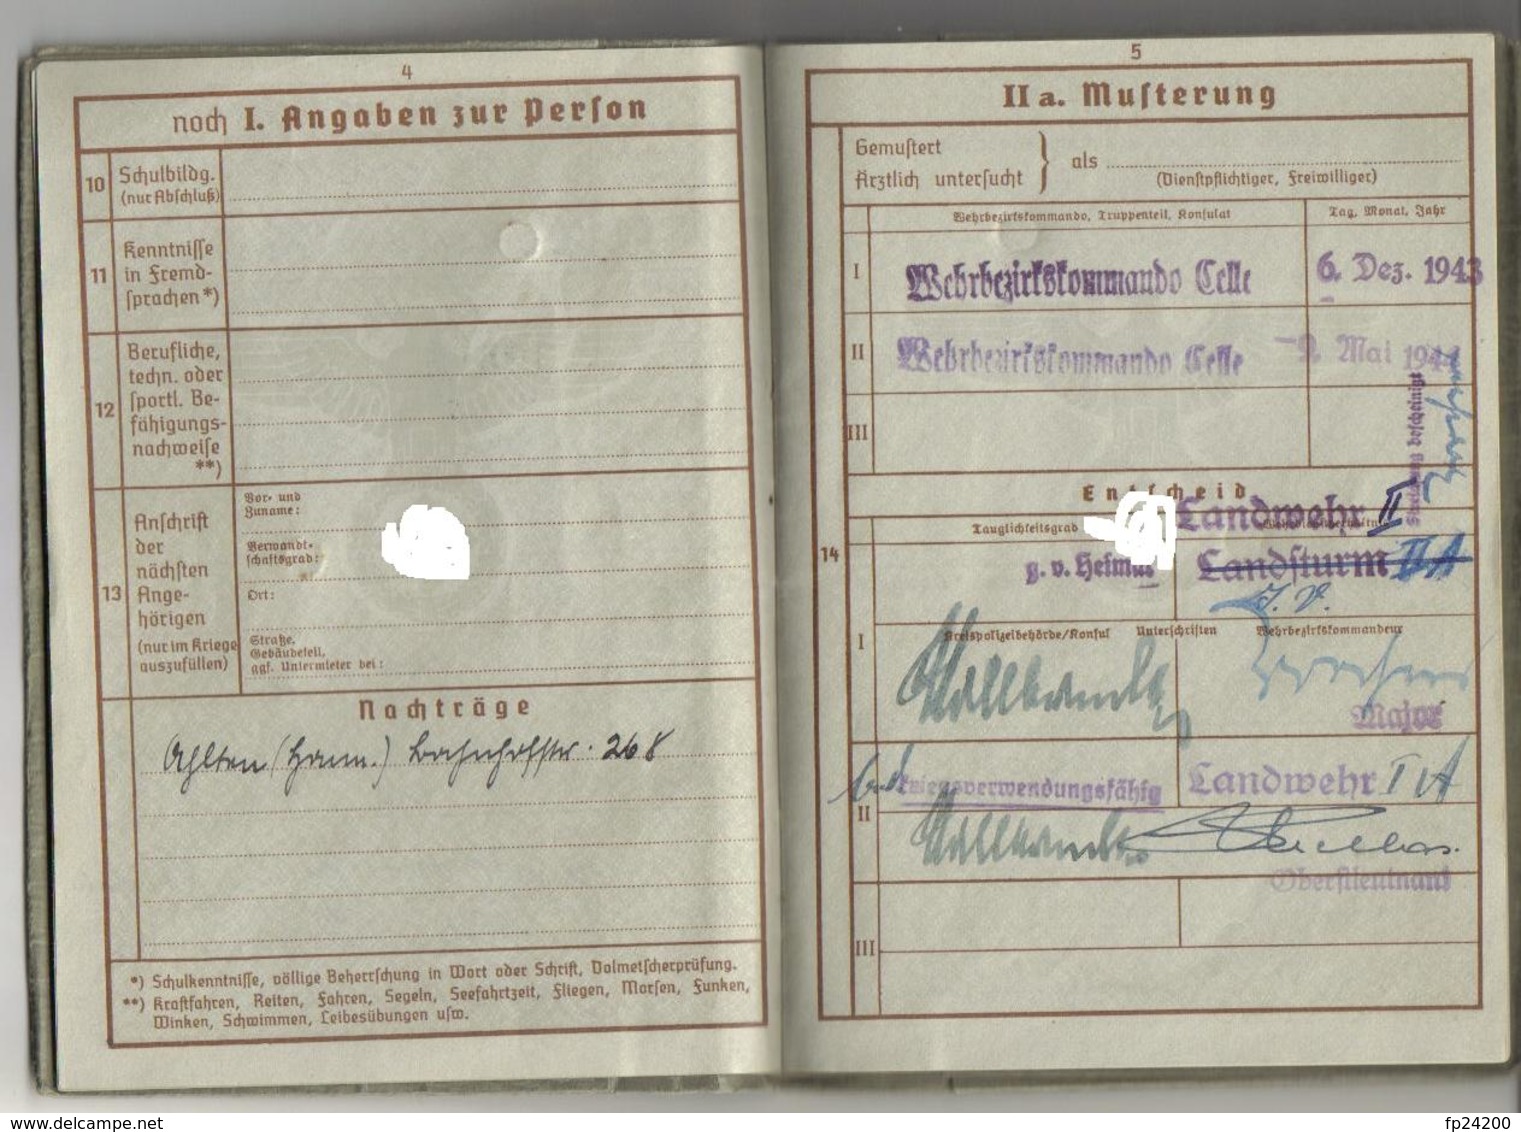 4
noch I. Angaben zur Person
10
Schulbildg.
(nur Abschluß)
11
Kenntnisse
in Fremd-
sprachen*)
12
Berufliche,
techn. oder
sportl. Be-
fähigungs-
nachweise
**)
13
Anschrift
der
nächsten
Ange-
hörigen
(nur im Kriege
auszufüllen)
Vor- und
Zuname:
Verwandt-
schaftsgrad:
Ort:
Straße,
Gebäudeteil,
ggf. Untermieter bei:
Nachträge
Ahlten (Hann.) Bahnhofstr. 268
*) Schulkenntnisse, völlige Beherrschung in Wort oder Schrift, Dolmetscherprüfung.
**) Kraftfahren, Reiten, Fahren, Segeln, Seefahrtzeit, Fliegen, Morsen, Funken,
Winken, Schwimmen, Leibesübungen usw.
5
II a. Musterung
Gemustert
Ärztlich untersucht
als
(Dienstpflichtiger, Freiwilliger)
Wehrbezirkskommando, Truppenteil, Konsulat
Tag, Monat, Jahr
I
Wehrbezirkskommando Celle
6. Dez. 1943
II
Wehrbezirkskommando Celle
-9. Mai 1944
III
Streichung bescheinigt
Entscheid
14
Tauglichkeitsgrad
Landwehr II
g. v. Heimat
Landsturm II A
J. V.
I
Kreispolizeibehörde/Konsul
Unterschriften
Wehrbezirkskommandeur
Major
kriegsverwendungsfähig
Landwehr I A
II
Oberstleutnant
III
www.delcampe.net
fp24200